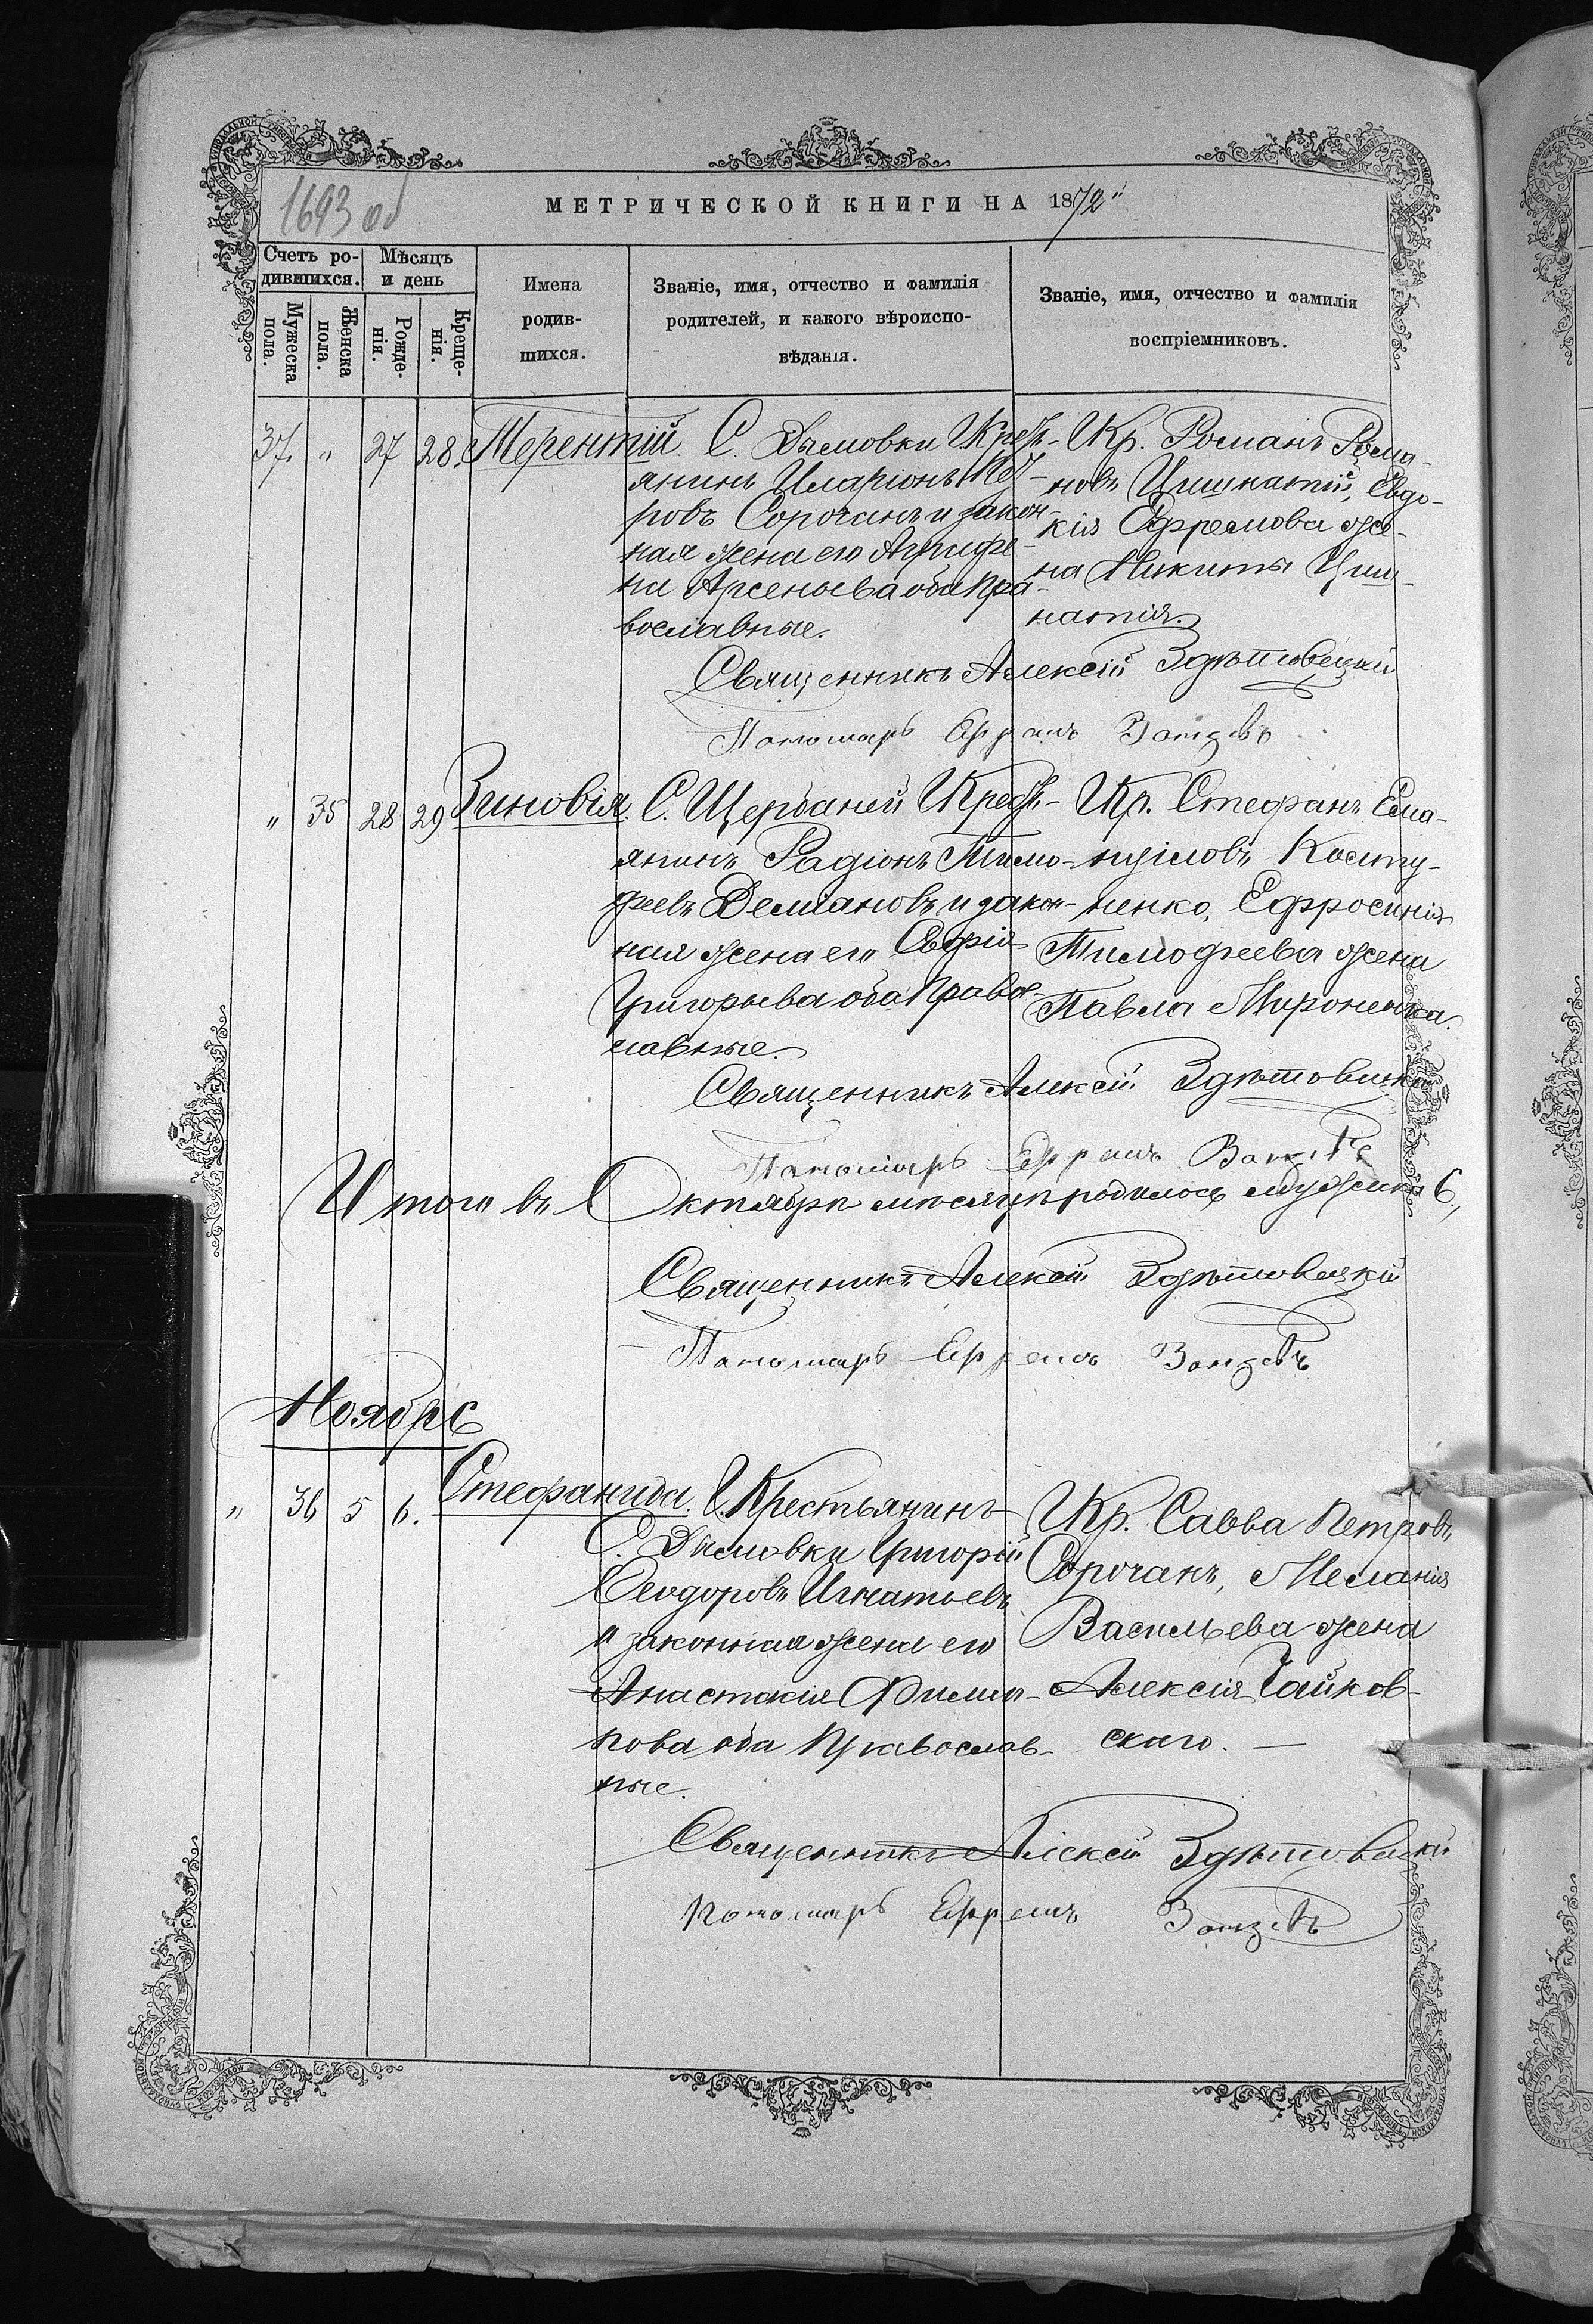 1693 об
МЕТРИЧЕСКОЙ КНИГИ НА 1872
Счетъ ро-
дившихся.
Мѣсяцъ
и день
Мужеска
пола.
Женска
пола.
Рожде-
нія.
Креще-
нія.
Имена
родив-
шихся.
Званіе, имя, отчество и фамилія
родителей, и какого вѣроиспо-
вѣданія.
Званіе, имя, отчество и фамилія
воспріемниковъ.
37. " 27 28. Терентій.
С. Дымовки Крест-
янинъ Иларіонъ Пет-
ровъ Сорочанъ и закон-
ная жена его Агрифе-
на Арсеньева оба пра-
вославные.
Кр. Романъ Рома-
новъ Цишнатій, Евдо-
кія Ефремова же-
на Никиты Циш-
натія.
Священникъ Алексій Здѣтовецкій
Пономарь Ефремъ
" 35 28 29 Зиновія.
С. Щербаней Крест-
янинъ Радіонъ Тимо-
феевъ Деміановъ и закон-
ная жена его Евфрія
Григорьева оба Правос-
лавные.
Кр. Стефанъ Ема-
нуиловъ Косту-
ненко, Ефросинія
Тимофеева жена
Павла Мироненка.
Священникъ Алексій Здѣтовецкій
Пономарь Ефремъ
Итого въ Октябрѣ мѣсяцѣ родилось мужска 6,
Священникъ Алексій Здѣтовецкій
Пономарь Ефремъ
Ноябрь
" 36 5 6. Стефанида.
Крестьянинъ
С. Дымовки Григорій
Ѳеодоровъ Игнатьевъ
и законная жена его
Анастасія Филип-
пова оба Православ-
ные.
Кр. Савва Петровъ
Сорочанъ, Меланія
Васильева жена
Алексія Чайков-
скаго. —
Священникъ Алексій Здѣтовецкій
Пономарь Ефремъ